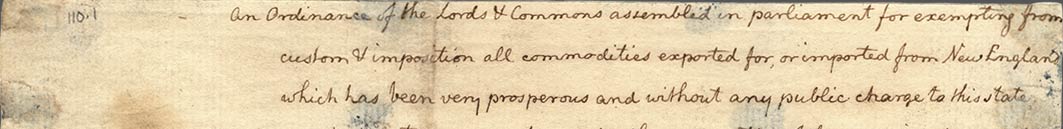 110.1
an Ordinance of the Lords & Commons assembled in parliament for exempting from
custom & imposition all commodities exported for, or imported from New England
which has been very prosperous and without any public charge to this state